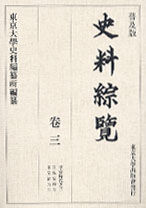 普及版
東京大學史料編纂所編纂
史料綜覽
卷三
東京大學出版會發行